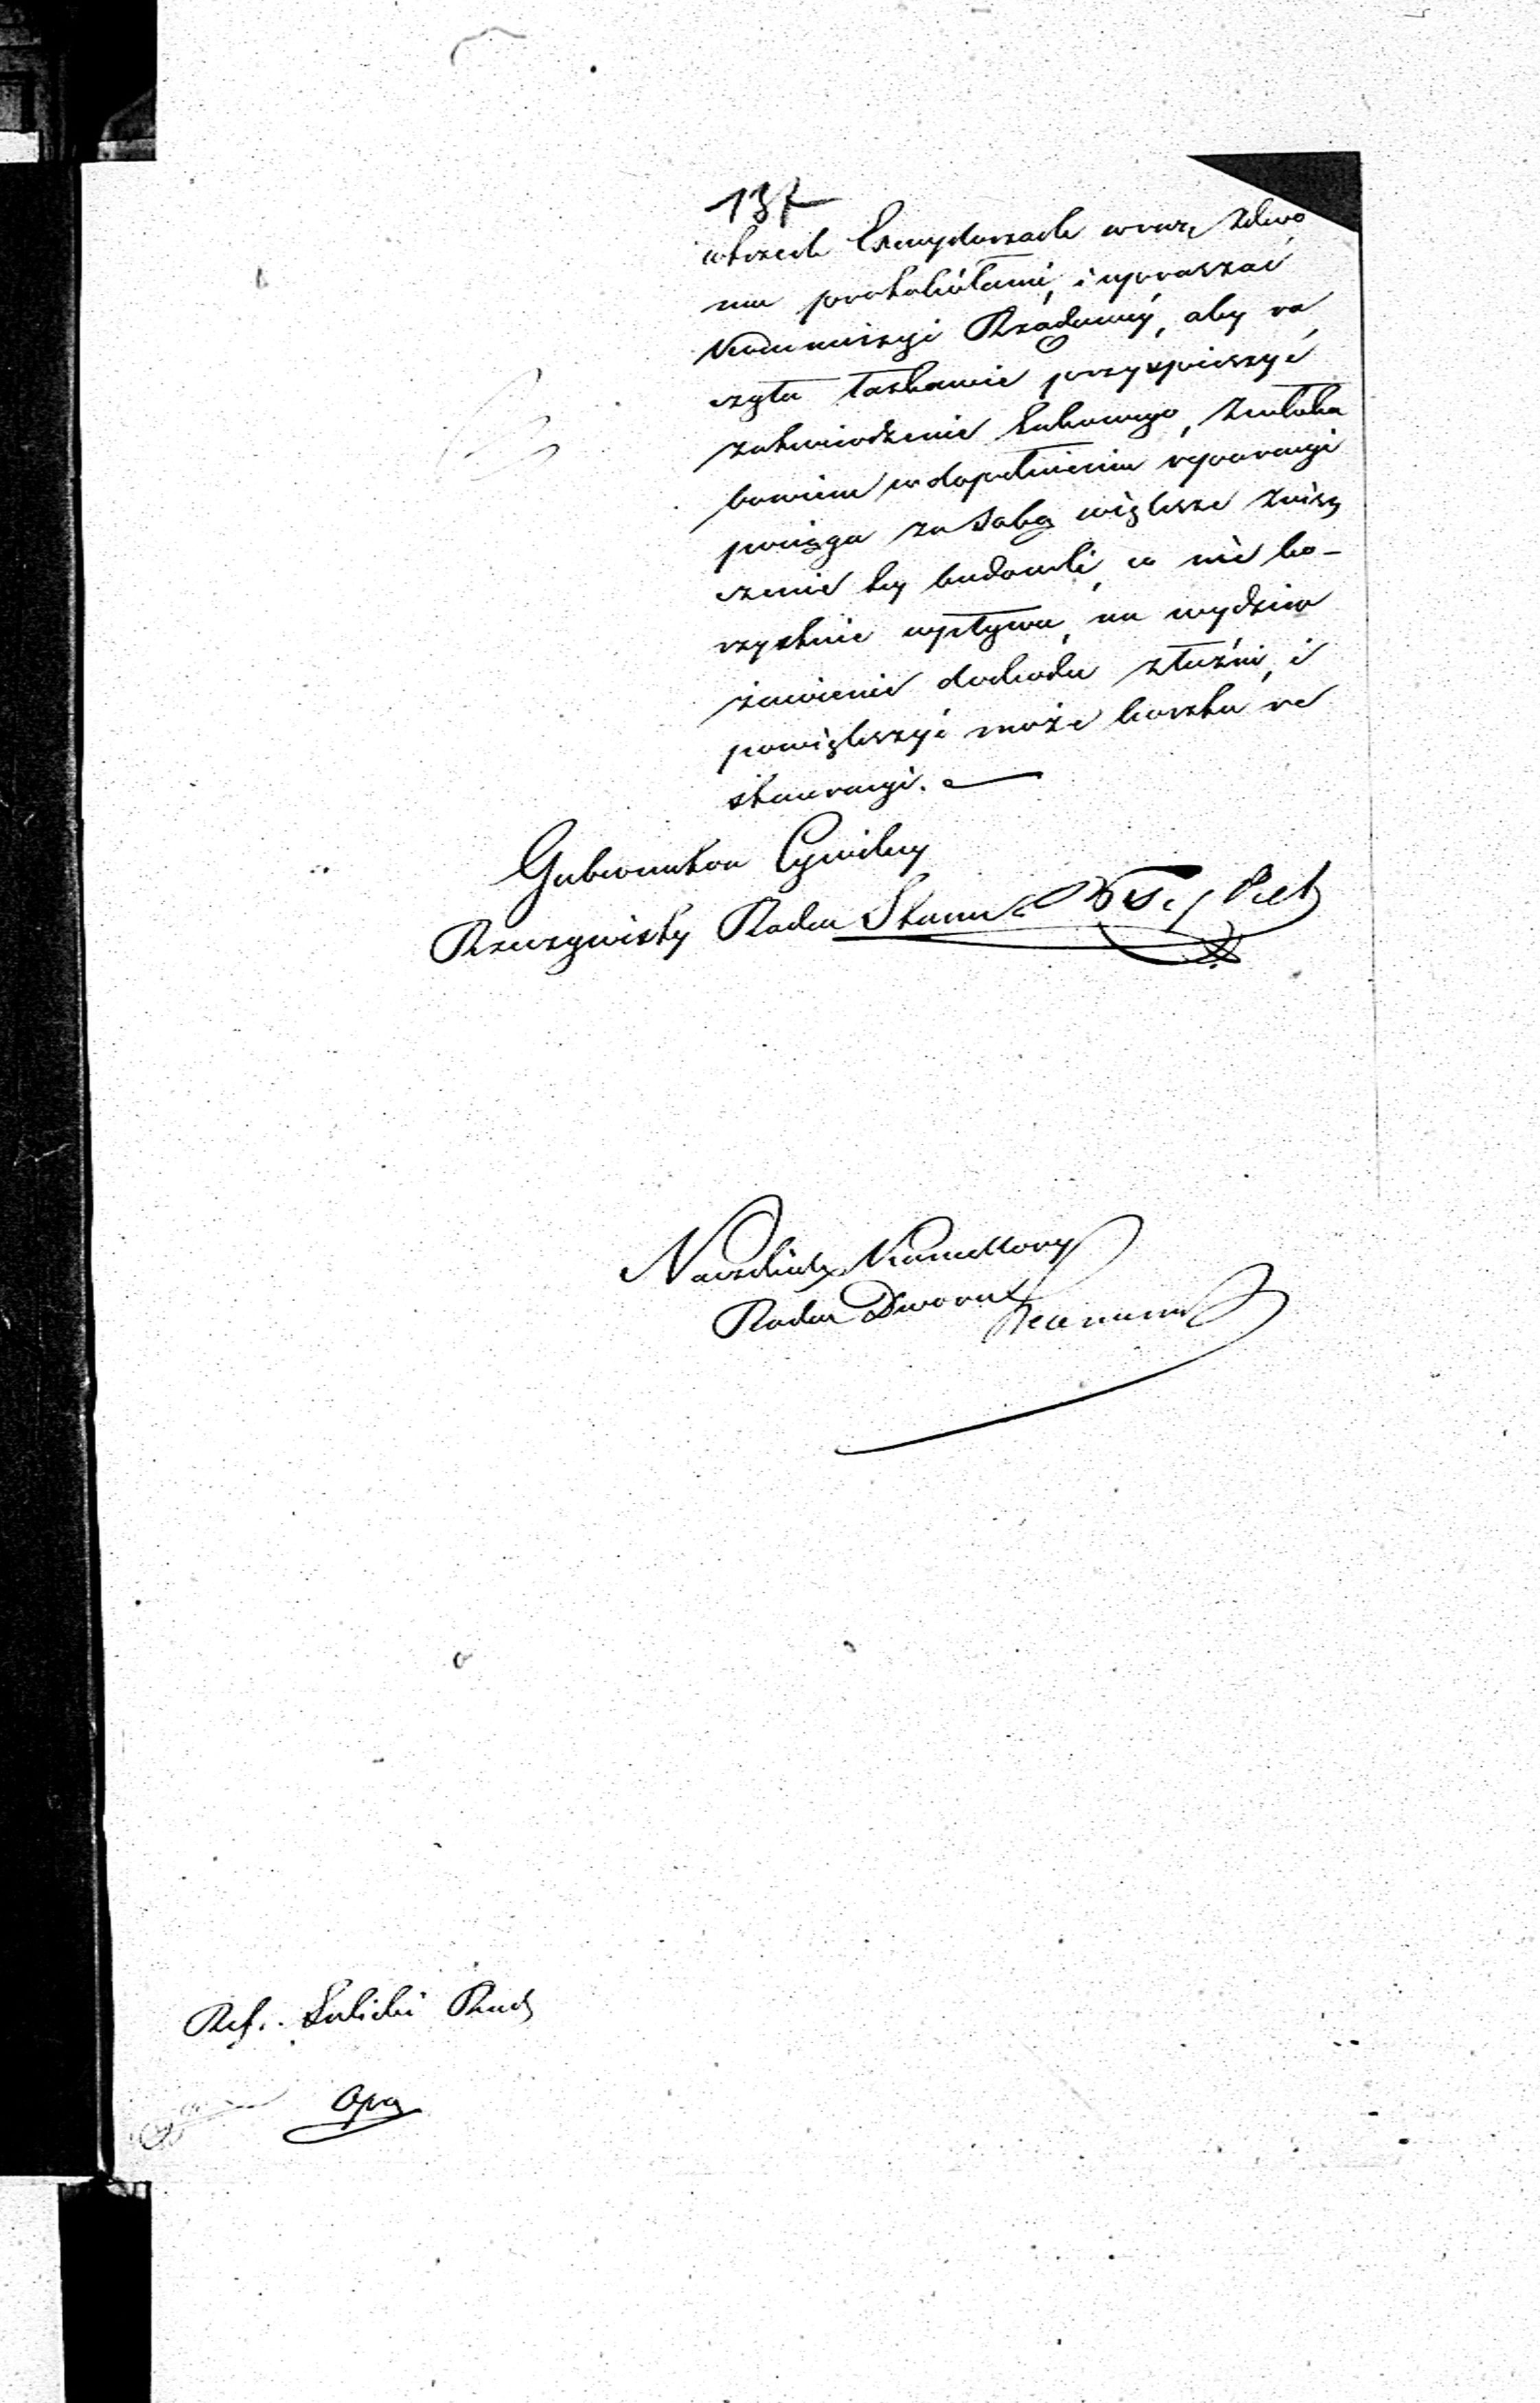 137
w trzech Exemplarzach wraz z dwo
ma protokółami, i upraszać
Kommissyi Rządowéj, aby ra
czyła łaskawie przyspieszyć
zatwierdzenie takowego, zwłoka
bowiem w dopełnieniu reparacyi
pociąga za sobą większe znisz
czenie tej budowli, co nie ko-
rzystnie wpływa, na wydzier
żawienie dochodu z łaźni, i
powiększyć może koszta re
stauracyi.
Gubernator Cywilny
Rzeczywisty Radca Stanu
Naczelnik Kancellaryi
Radca Dworu
Ref. Radc